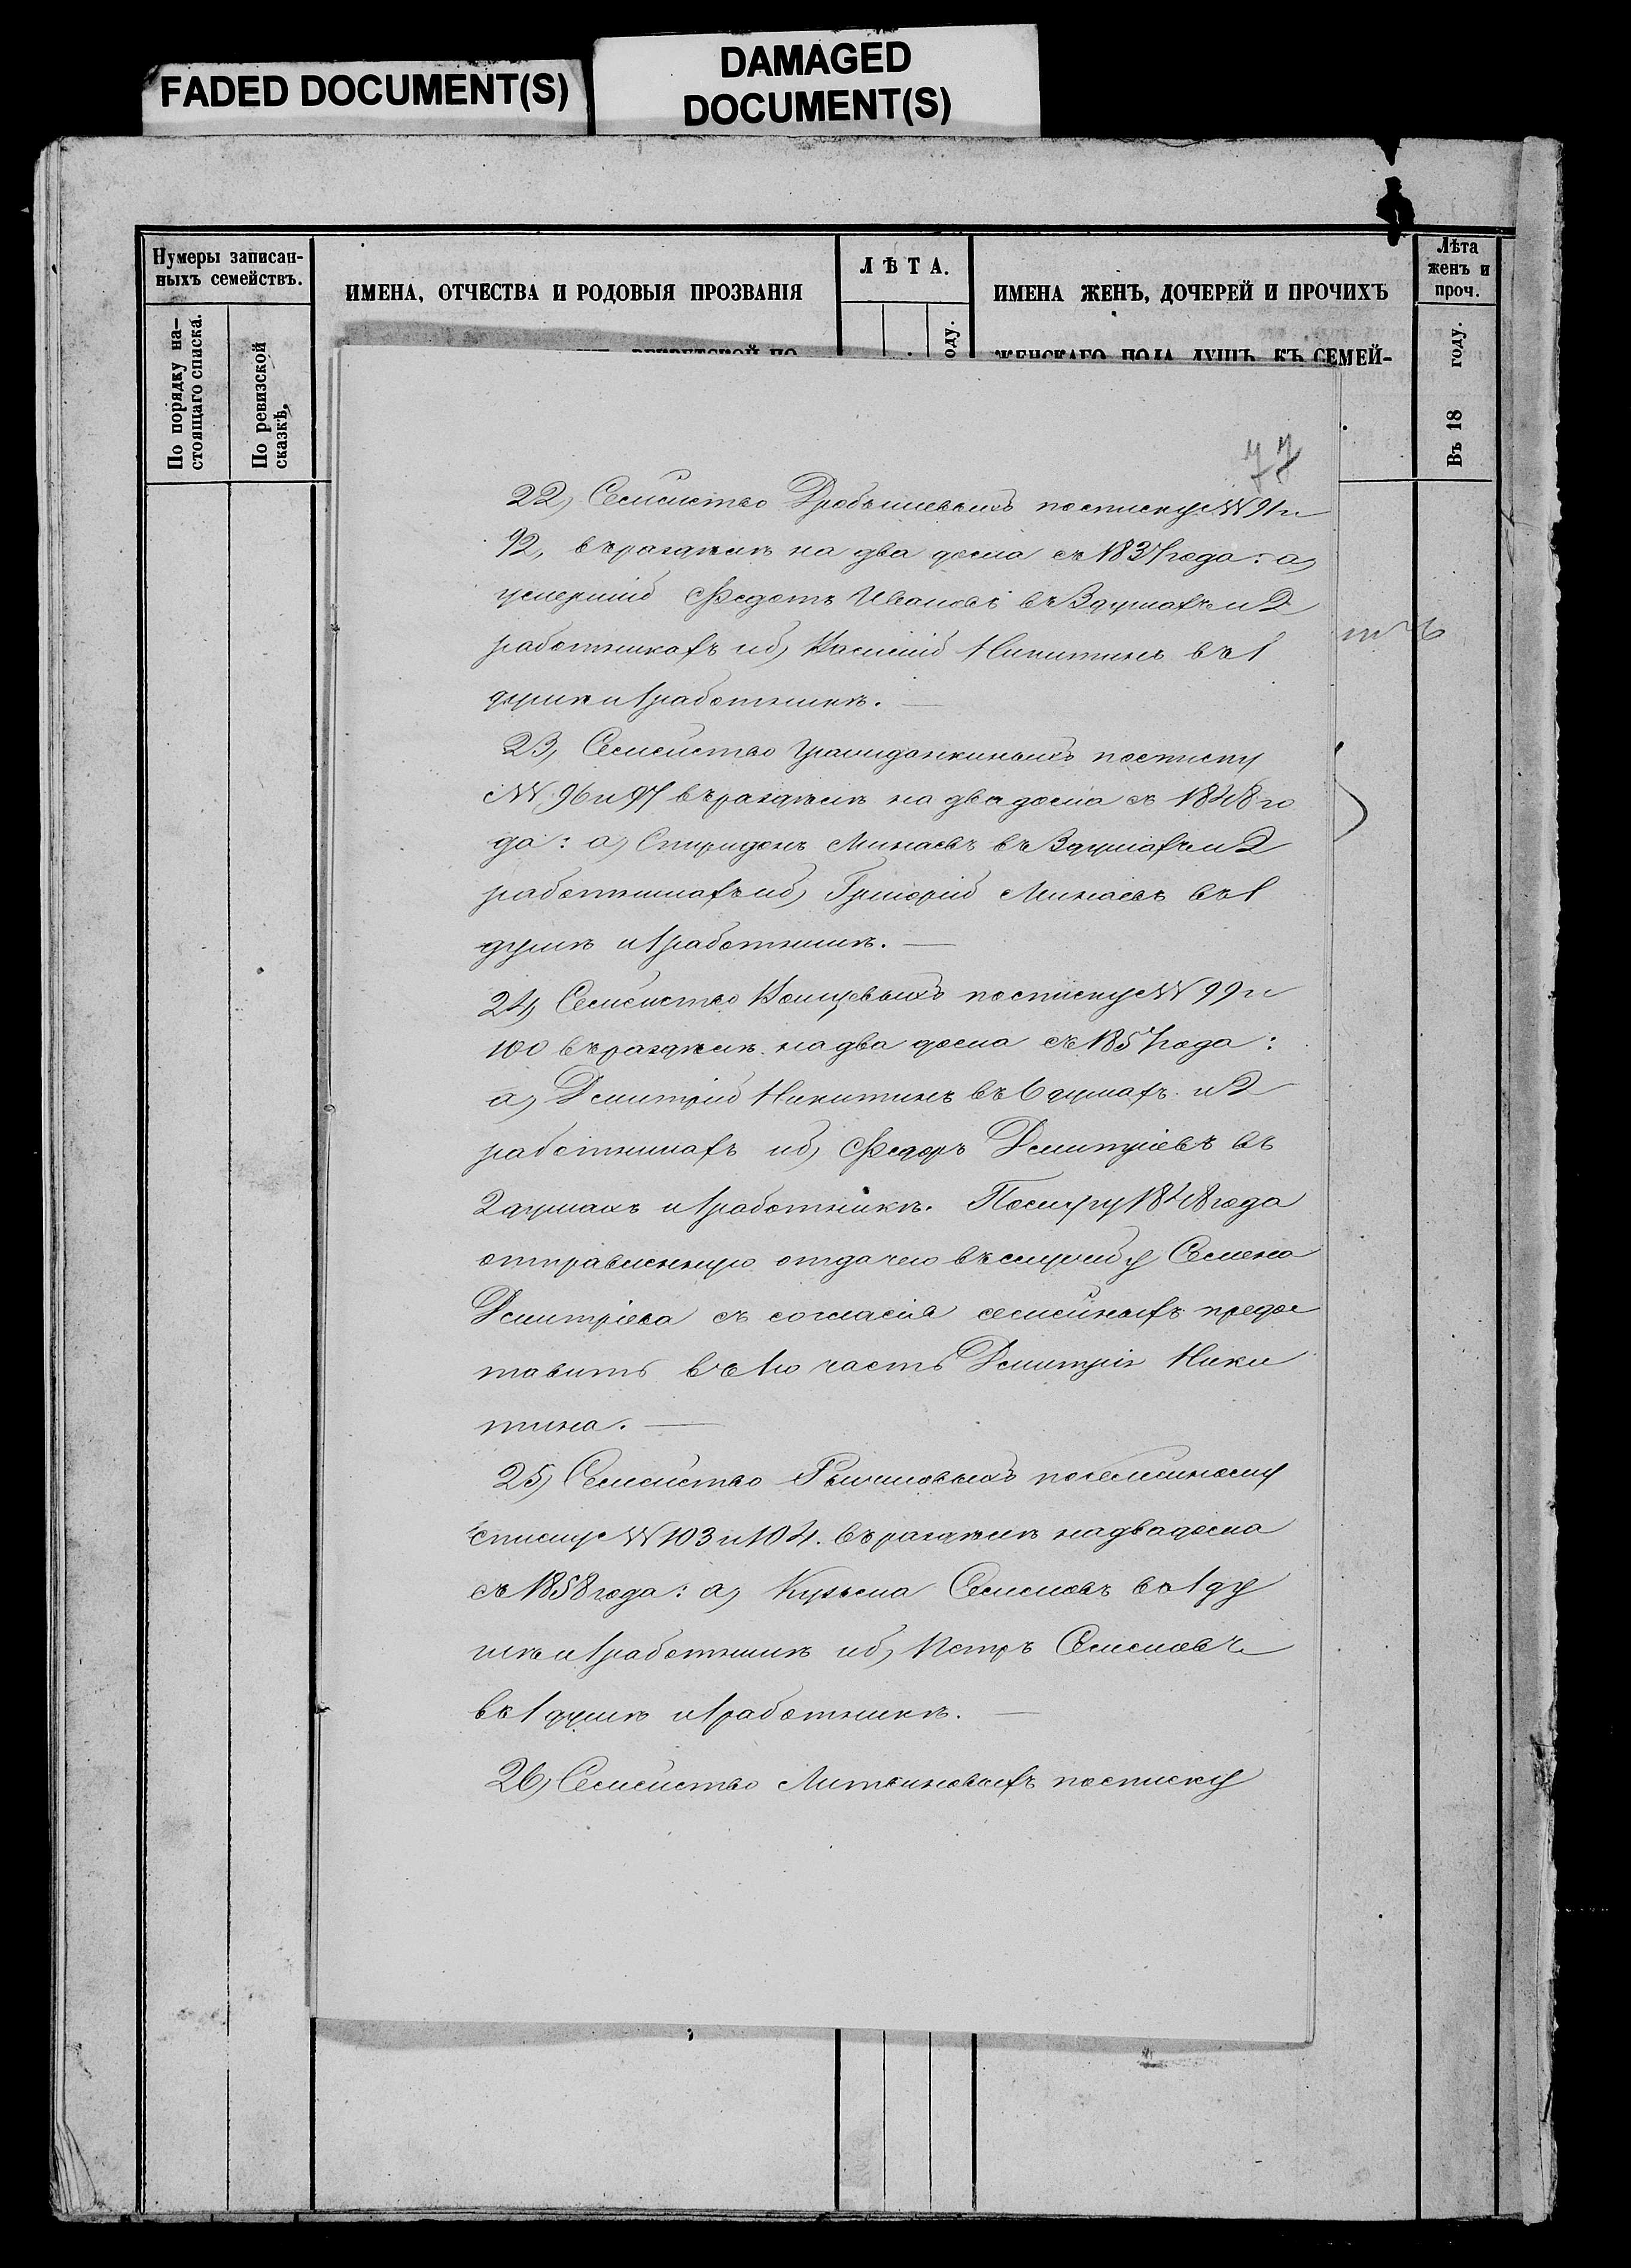 FADED DOCUMENT(S)
DAMAGED
DOCUMENT(S)
Нумеры записан-
ныхъ семействъ.
По порядку на-
стоящаго списка.
По ревизской
сказкѣ.
ИМЕНА, ОТЧЕСТВА И РОДОВЫЯ ПРОЗВАНІЯ
ЛѢТА.
оду.
ИМЕНА ЖЕНЪ, ДОЧЕРЕЙ И ПРОЧИХЪ
ЖЕНСКАГО ПОЛА ДУШЪ, КЪ СЕМЕЙ-
Лѣта
женъ и
проч.
Въ 18 году.
77
22, Семейство Дробышевыхъ по списку №№ 91 и
92, въ раздѣлѣ на два дома съ 1837 года: а,
умершій Федотъ Ивановъ въ 3 душахъ и 2
работникахъ и б, Никитинъ въ 1
душѣ и 1 работникѣ. —
23, Семейство по списку
№№ 96 и 97 въ раздѣлѣ на два дома съ 1848 го
да: а, Спиридонъ Минаевъ въ 3 душахъ и 2
работникахъ и б, Григорій Минаевъ въ 1
душѣ и 1 работникѣ. —
24, Семейство по списку №№ 99 и
100 въ раздѣлѣ на два дома съ 1857 года:
а, Дмитрій Никитинъ въ 6 душахъ и 2
работникахъ и б, Федоръ Дмитріевъ въ
2 душахъ и 1 работникѣ. 1848 года
отправленную отдачею въ службу Семена
Дмитріева съ согласія семейныхъ предос
тавить въ 1ю часть Дмитрія Ники
тина. —
25, Семейство по семейному
списку №№ 103 и 104. въ раздѣлѣ на два дома
съ 1858 года: а, Кузьма Семеновъ въ 1 ду
шѣ и 1 работникѣ и б, Петръ Семеновъ
въ 1 душѣ и 1 работникѣ. —
26, Семейство Литвиновыхъ по списку